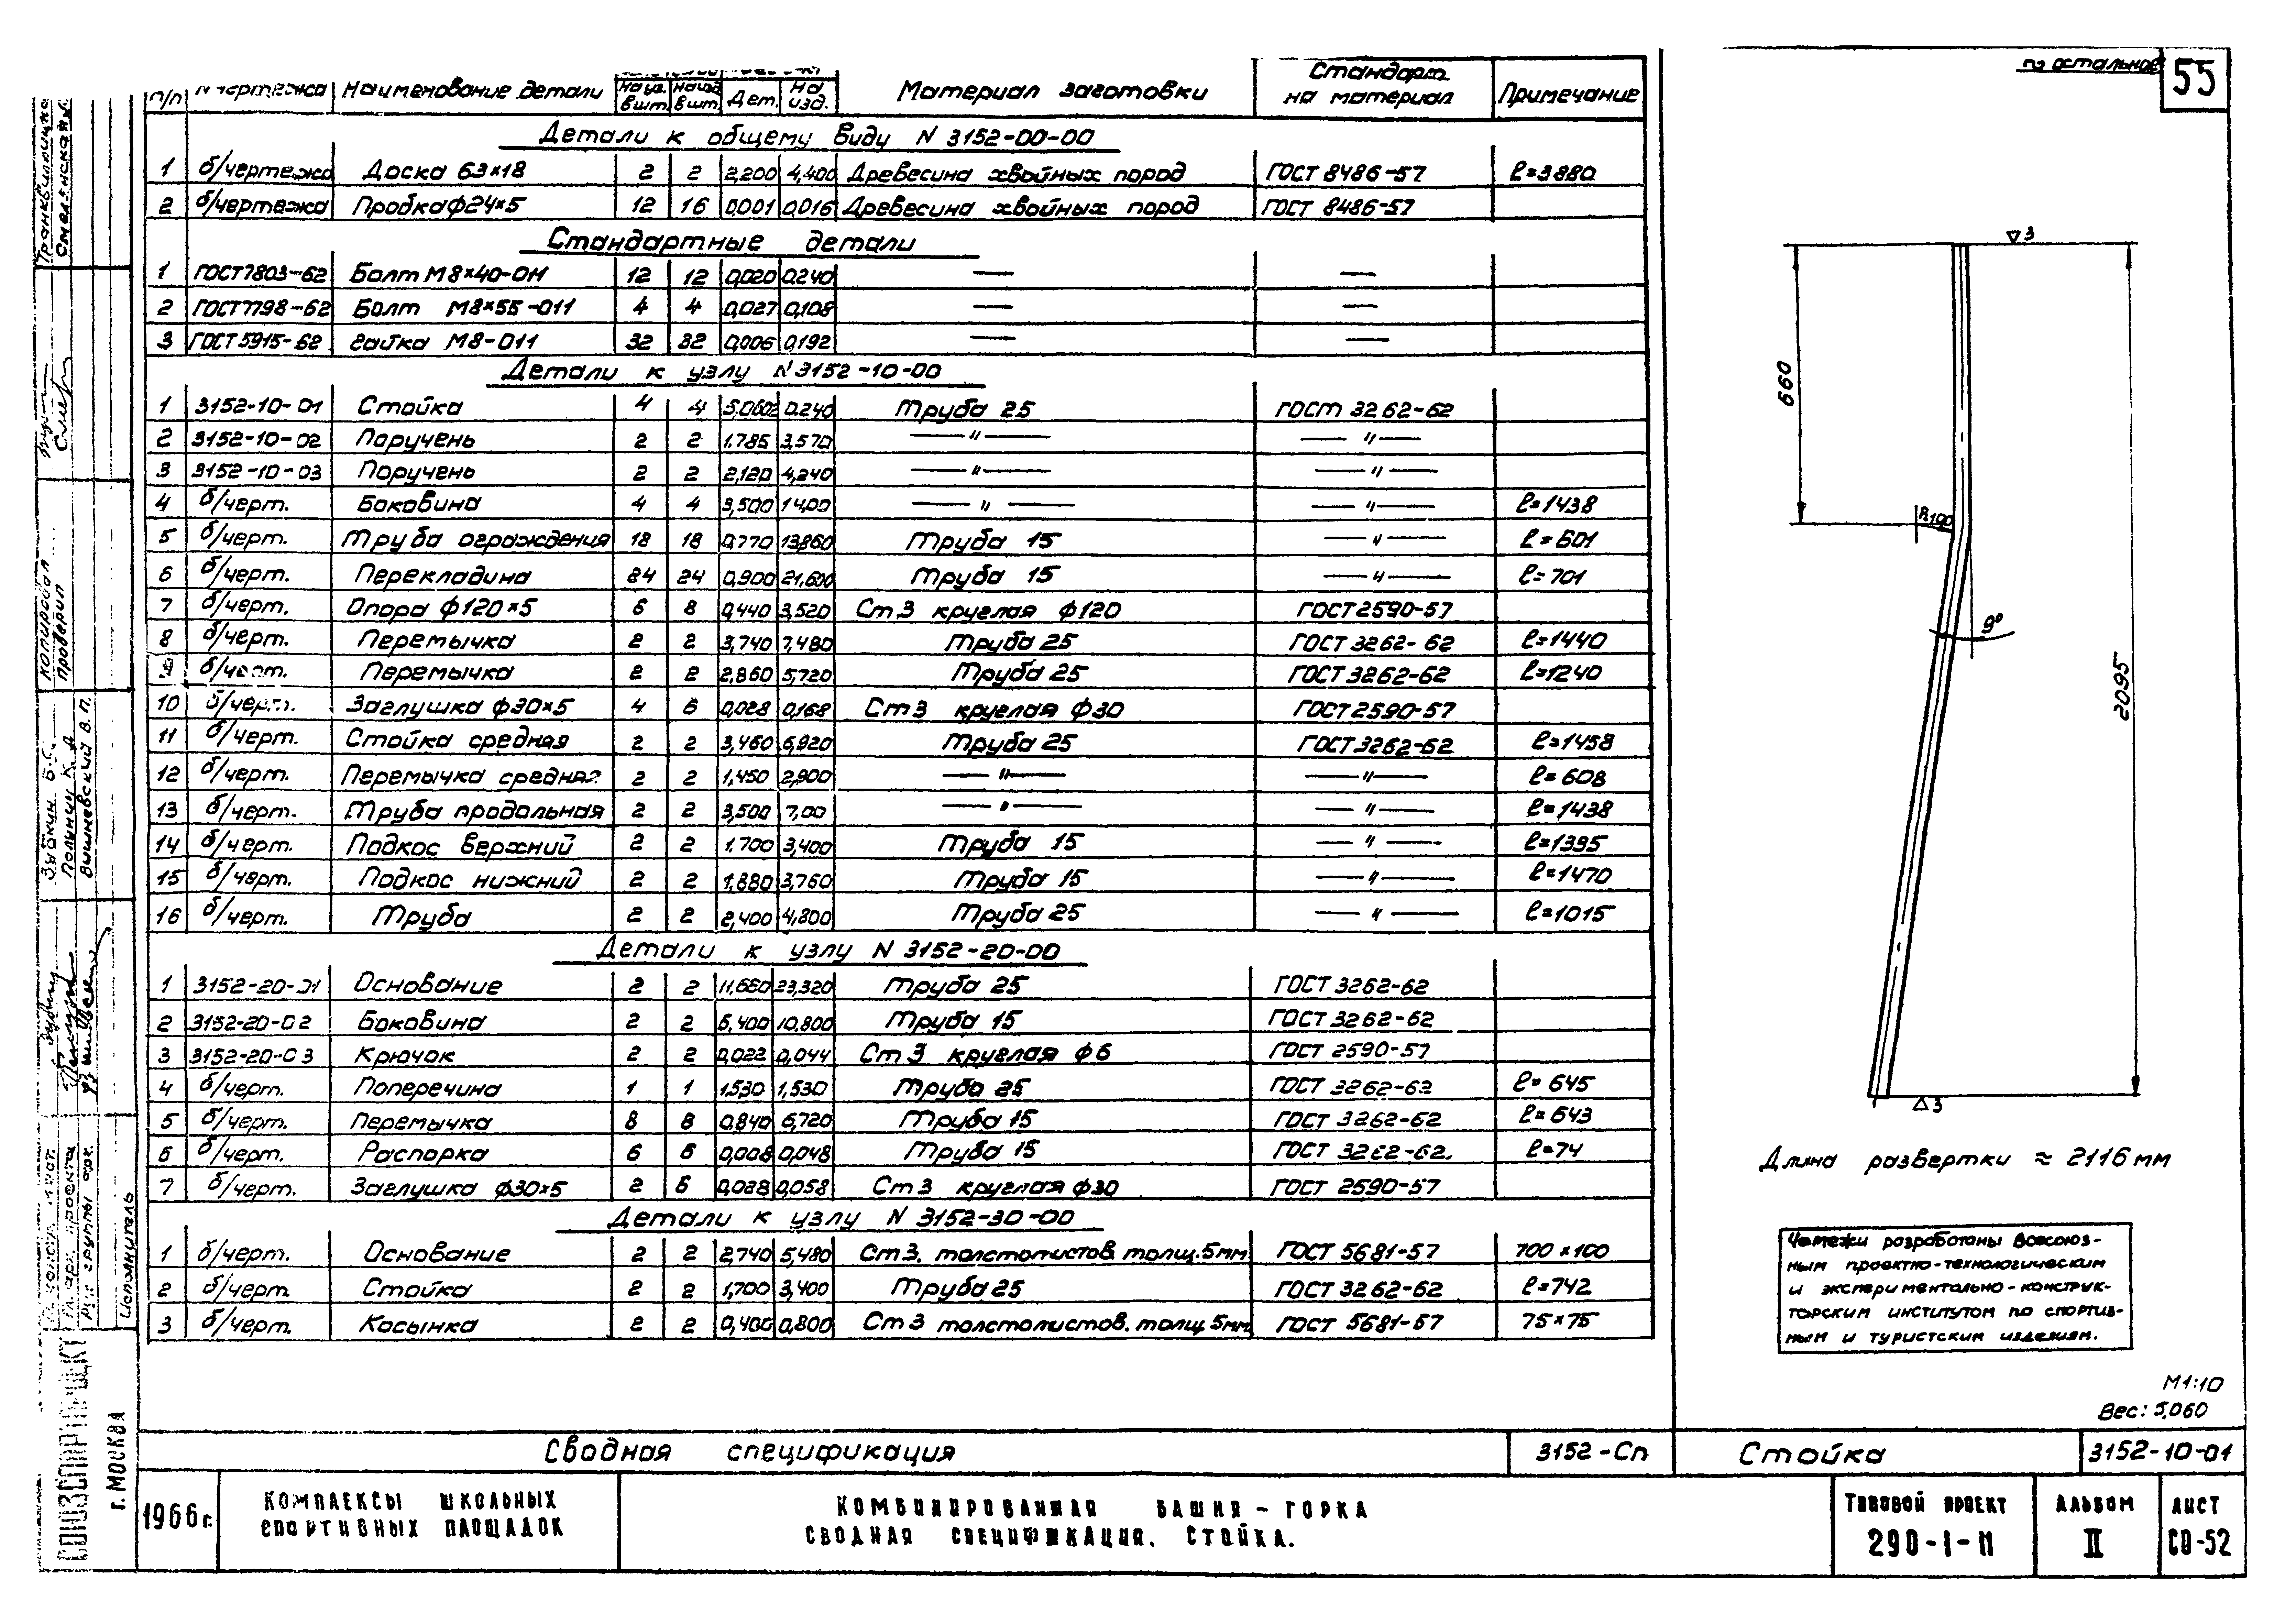 55
п/п Наименование детали Дет. На изд. Материал заготовки Стандарт на материал Примечание
Детали к общему виду N 3152-00-00
1 б/чертежа Доска 63×18 2 2 2,200 4,400 Древесина хвойных пород ГОСТ 8486-57 ℓ=3880
2 б/чертежа Пробка ф24×5 12 16 0,001 0,016 Древесина хвойных пород ГОСТ 8486-57
Стандартные детали
1 ГОСТ7803-62 Болт М8×40-011 12 12 0,020 0,240 — —
2 ГОСТ7798-62 Болт М8×55-011 4 4 0,027 0,108 — —
3 ГОСТ5915-62 гайка М8-011 32 32 0,006 0,192 — —
Детали к узлу N 3152-10-00
1 3152-10-01 Стойка 4 4 5,060 20,240 Труба 25 ГОСТ 3262-62
2 3152-10-02 Поручень 2 2 1,785 3,570 —"— —"—
3 3152-10-03 Поручень 2 2 2,120 4,240 —"— —"—
4 б/черт. Боковина 4 4 3,500 14,00 —"— —"— ℓ=1438
5 б/черт. Труба ограждения 18 18 0,770 13,860 Труба 15 —"— ℓ=601
6 б/черт. Перекладина 24 24 0,900 21,600 Труба 15 —"— ℓ=701
7 б/черт. Опора ф120×5 6 8 0,440 3,520 Ст3 круглая ф120 ГОСТ2590-57
8 б/черт. Перемычка 2 2 3,740 7,480 Труба 25 ГОСТ3262-62 ℓ=1440
9 б/черт. Перемычка 2 2 2,860 5,720 Труба 25 ГОСТ3262-62 ℓ=1240
10 б/черт. Заглушка ф30×5 4 6 0,028 0,168 Ст3 круглая ф30 ГОСТ2590-57
11 б/черт. Стойка средняя 2 2 3,460 6,920 Труба 25 ГОСТ3262-62 ℓ=1458
12 б/черт. Перемычка средняя 2 2 1,450 2,900 —"— —"— ℓ=608
13 б/черт. Труба продольная 2 2 3,500 7,00 —"— —"— ℓ=1438
14 б/черт. Подкос верхний 2 2 1,700 3,400 Труба 15 —"— ℓ=1395
15 б/черт. Подкос нижний 2 2 1,880 3,760 Труба 15 —"— ℓ=1470
16 б/черт. Труба 2 2 2,400 4,800 Труба 25 —"— ℓ=1015
Детали к узлу N 3152-20-00
1 3152-20-01 Основание 2 2 11,660 23,320 Труба 25 ГОСТ 3262-62
2 3152-20-02 Боковина 2 2 5,400 10,800 Труба 15 ГОСТ 3262-62
3 3152-20-03 Крючок 2 2 0,022 0,044 Ст3 круглая ф6 ГОСТ 2590-57
4 б/черт. Поперечина 1 1 1,530 1,530 Труба 25 ГОСТ 3262-62 ℓ=645
5 б/черт. Перемычка 8 8 0,840 6,720 Труба 15 ГОСТ 3262-62 ℓ=643
6 б/черт. Распорка 6 6 0,008 0,048 Труба 15 ГОСТ 3262-62. ℓ=74
7 б/черт. Заглушка ф30×5 2 6 0,028 0,058 Ст3 круглая ф30 ГОСТ 2590-57
Детали к узлу N 3152-30-00
1 б/черт. Основание 2 2 2,740 5,480 Ст3. толстолистов. толщ. 5мм ГОСТ 5681-57 700×100
2 б/черт. Стойка 2 2 1,700 3,400 Труба 25 ГОСТ 3262-62 ℓ=742
3 б/черт. Косынка 2 2 0,400 0,800 Ст3 толстолистов. толщ 5мм ГОСТ 5681-57 75×75
по остальное
▽3
660
R100
9°
2095
△3
Длина развертки ≈ 2116 мм
Чертежи разработаны Всесоюз-
ным проектно-технологическим
и экспериментально-конструк-
торским институтом по спортив-
ным и туристским изделиям.
М1:10
Вес: 5,060
Сводная спецификация 3152-Сп Стойка 3152-10-01
1966г. Комплексы школьных спортивных площадок
Комбинированная башня-горка
Сводная спецификация. Стойка.
Типовой проект 290-I-11
Альбом II
Лист СО-52
копировал
проверил
Зубкин Б.С.
Полунин К.А
Вишневский В.П.
Исполнитель
г. Москва